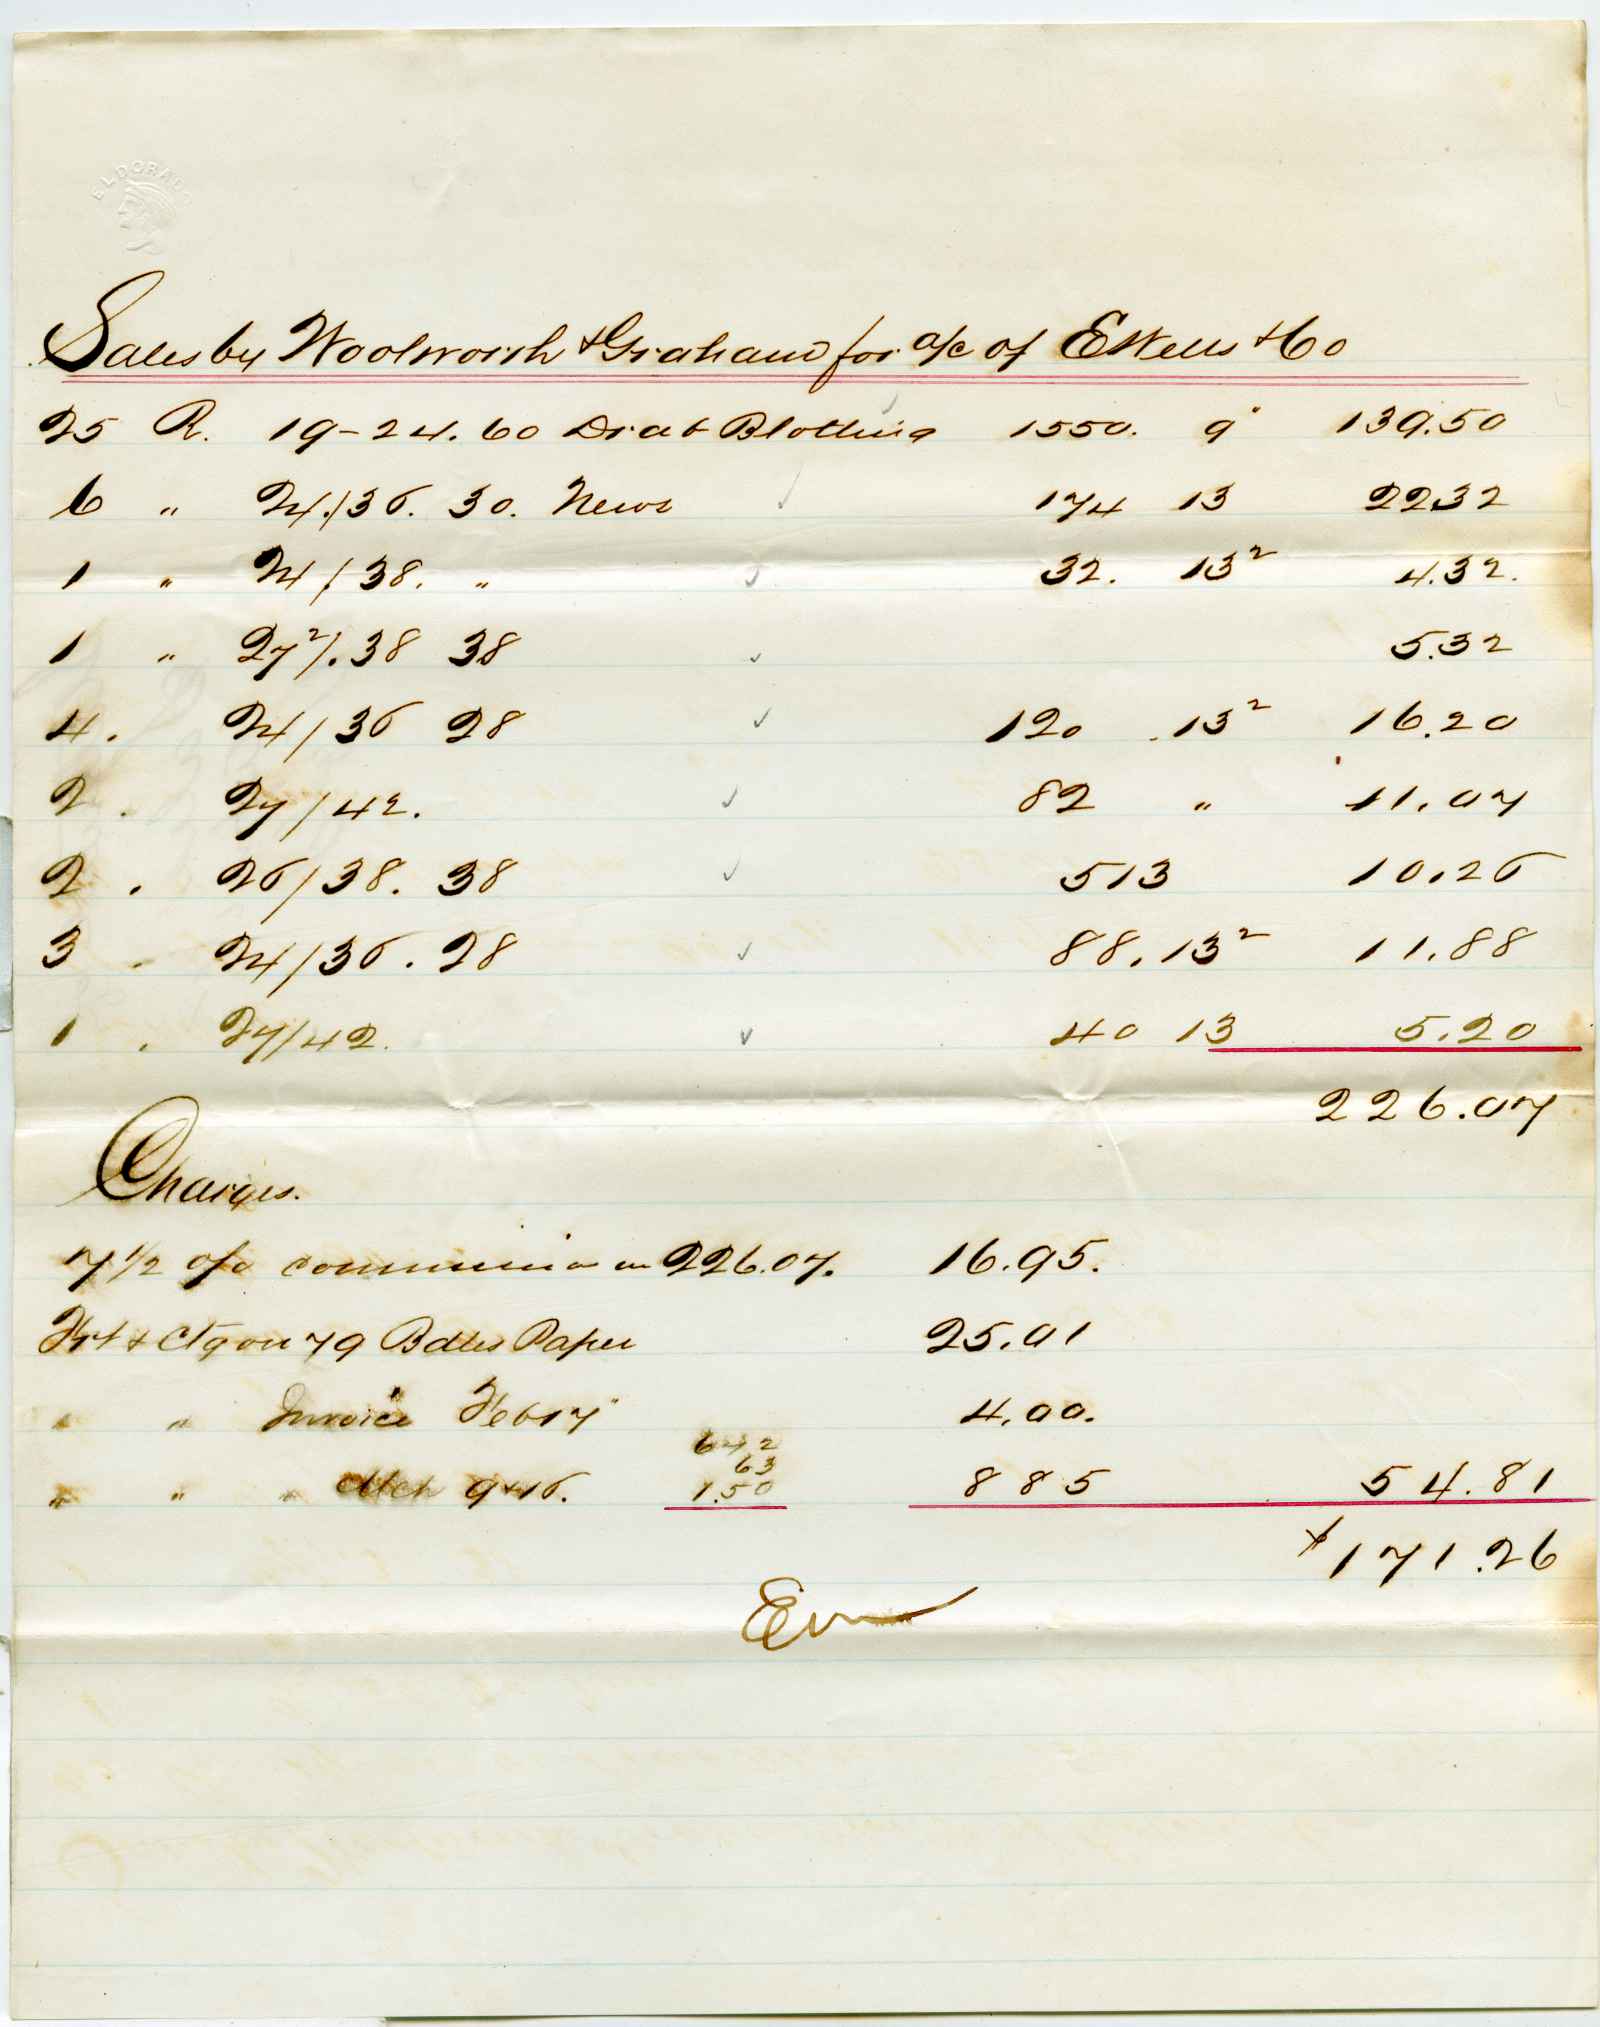 ELDORADO
Sales by Woolworth & Graham for a/c of E Wells & Co
25 R. 19-24. 60 Drab Blotting 1550. 9" 139.50
6 " 24/36. 30. News 174 13 22.32
1 " 24/38. " 32. 13² 4.32.
1 " 27²/.38 38 5.32
4. 24/36 28 120 .13² 16.20
2 . 27/42. 82 " 11.07
2 . 26/38. 38 513 10.26
3 . 24/36. 28 88. 13² 11.88
1 . 27/42. 40 13 5.20
226.07
Charges.
7 1/2 o/o commission on 226.07. 16.95.
Frt & Ctg on 79 Bdles Paper 25.01
" " Invoice Feb 17" 4.00.
642
63
" " " Mch 9 & 16. 1.50 885 54.81
$171.26